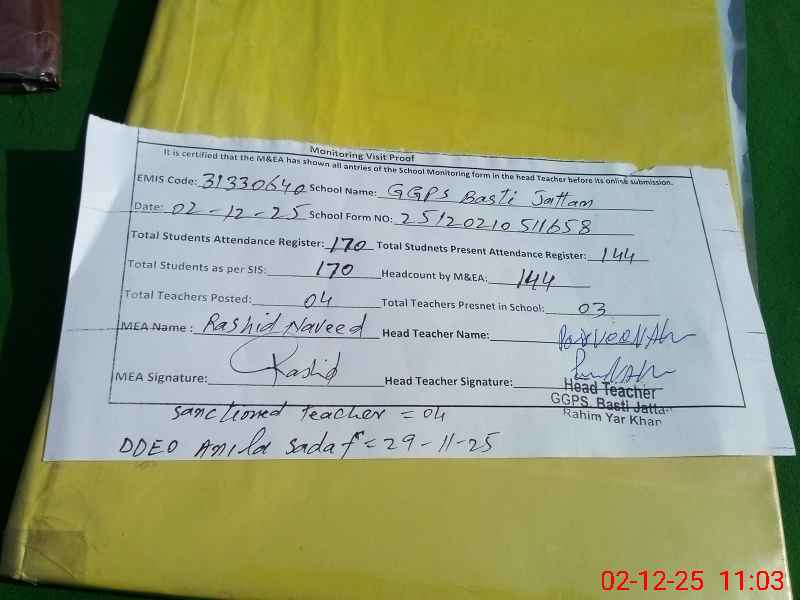 Monitoring Visit Proof
It is certified that the M&EA has shown all antries of the School Monitoring form in the head Teacher before its online submission.
EMIS Code: 31330640 School Name: GGPS Basti Jattan
Date: 02-12-25 School Form NO: 25120210511658
Total Students Attendance Register: 170 Total Studnets Present Attendance Register: 144
Total Students as per SIS: 170 Headcount by M&EA: 144
Total Teachers Posted: 04 Total Teachers Presnet in School: 03
MEA Name : Rashid Naveed Head Teacher Name:
MEA Signature: Rashid Head Teacher Signature:
Head Teacher
GGPS. Basti Jattan
Rahim Yar Khan
Sanctioned teacher = 04
DDEO Anila Sadaf = 29-11-25
02-12-25 11:03